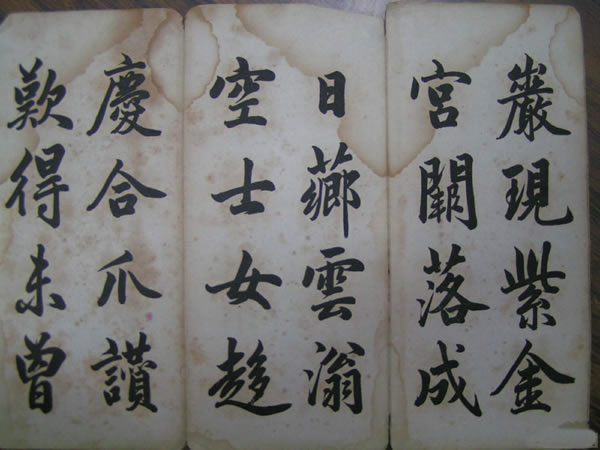 巖現紫金
宮闕落成
日薌雲滃
空士女趍
慶合爪讚
歎得未曾